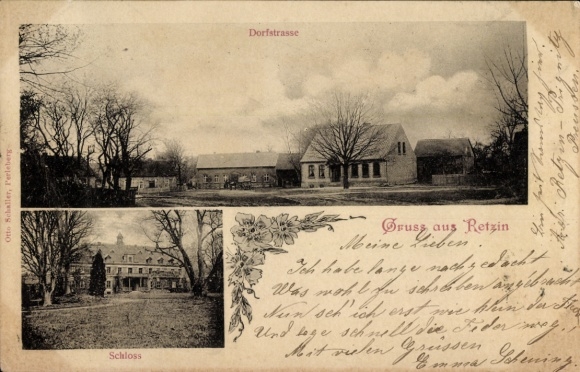 Dorfstrasse
Otto Schaller, Perleberg
Gruss aus Retzin
Schloss
Meine Lieben.
Ich habe lange nachgedacht
Was wohl zu schreiben angebracht
Nun seh' ich erst wie klein die
Und lege schnell die Feder weg,
Mit vielen Grüssen
Emma
Retzin